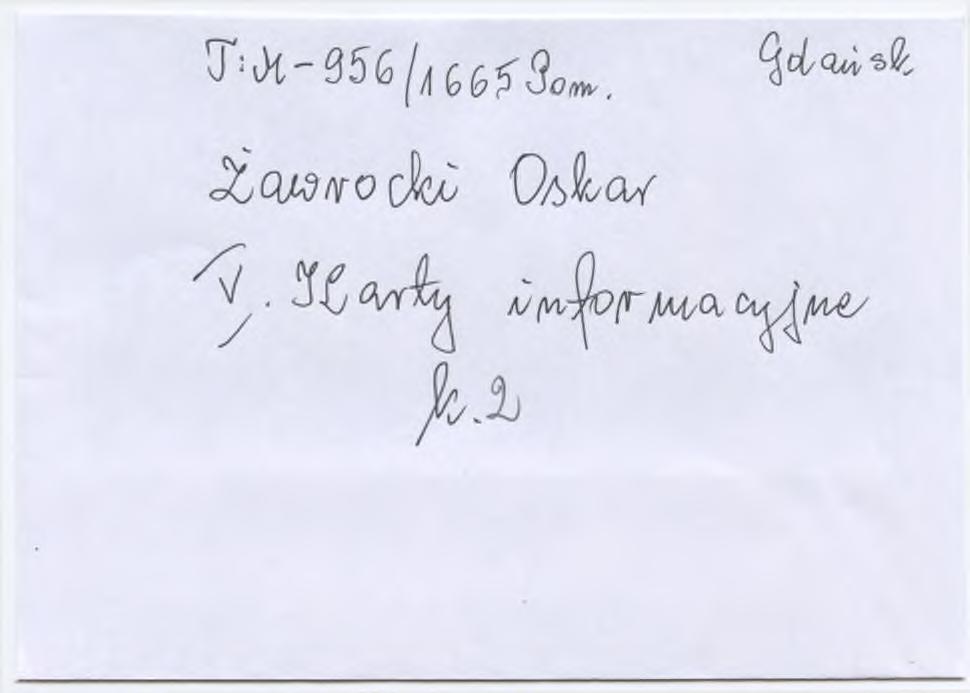 T: M-956/1665 Pom. Gdańsk
Żawrocki Oskar
V. Karty informacyjne
k. 2